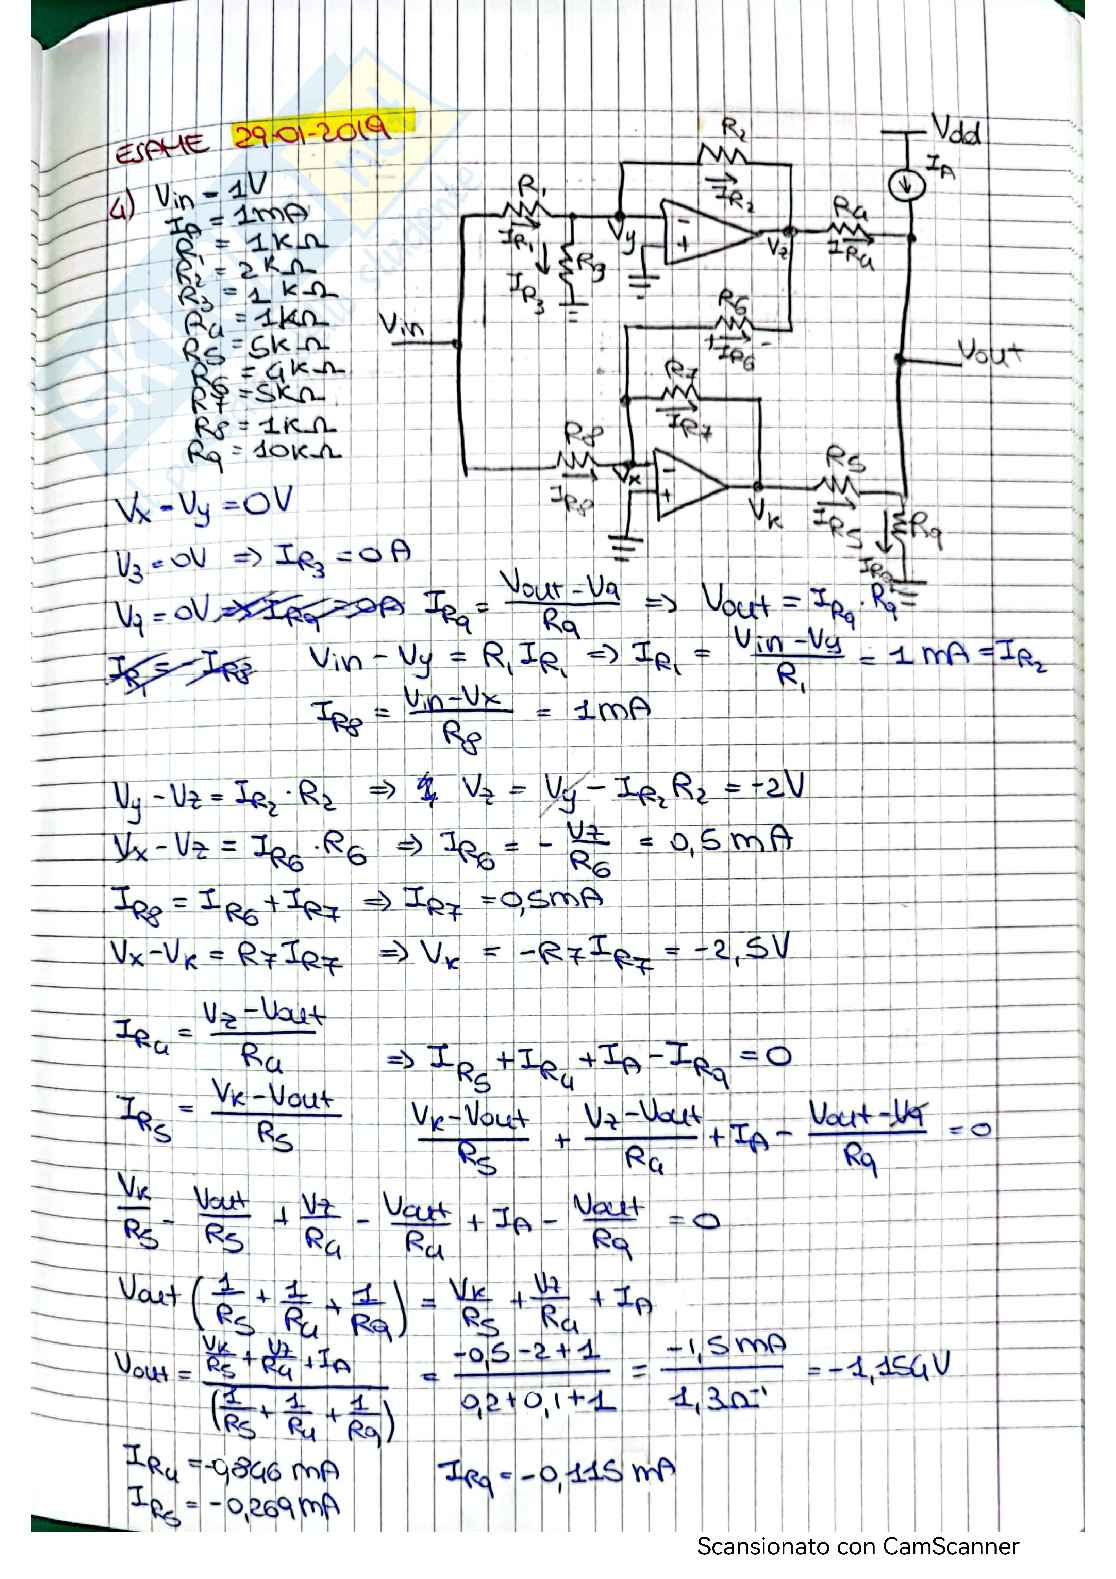 ESAME 29-01-2019
4) Vin = 1V
IA = 1mA
R1 = 1KΩ
R2 = 2KΩ
R3 = 1KΩ
R4 = 1KΩ
R5 = 5KΩ
R6 = 4KΩ
R7 = 5KΩ
R8 = 1KΩ
R9 = 10KΩ
Vdd
IA
R2
IR2
R1
IR1
Vy
R3
IR3
Vz
R4
IR4
Vin
R6
+ IR6 -
Vout
R7
IR7
R8
IR8
Vx
VK
R5
IR5
R9
IR9
Vx - Vy = 0V
V3 = 0V ⇒ IR3 = 0A
V9 = 0V ⇒ IR9 = 0A IR9 = (Vout - V9)/R9 ⇒ Vout = IR9 · R9
IR1 = IR8 Vin - Vy = R1 IR1 ⇒ IR1 = (Vin - Vy)/R1 = 1mA = IR2
IR8 = (Vin - Vx)/R8 = 1mA
Vy - Vz = IR2 · R2 ⇒ Vz = Vy - IR2 R2 = -2V
Vx - Vz = IR6 · R6 ⇒ IR6 = - Vz/R6 = 0,5mA
IR8 = IR6 + IR7 ⇒ IR7 = 0,5mA
Vx - VK = R7 IR7 ⇒ VK = -R7 IR7 = -2,5V
IR4 = (Vz - Vout)/R4 ⇒ IR5 + IR4 + IA - IR9 = 0
IR5 = (VK - Vout)/R5 (VK - Vout)/R5 + (Vz - Vout)/R4 + IA - (Vout - V9)/R9 = 0
VK/R5 - Vout/R5 + Vz/R4 - Vout/R4 + IA - Vout/R9 = 0
Vout (1/R5 + 1/R4 + 1/R9) = VK/R5 + Vz/R4 + IA
Vout = (VK/R5 + Vz/R4 + IA)/(1/R5 + 1/R4 + 1/R9) = (-0,5 - 2 + 1)/(0,2 + 0,1 + 1) = -1,5mA/1,3Ω⁻¹ = -1,154V
IR4 = -0,846mA IR9 = -0,115mA
IR5 = -0,269mA
Scansionato con CamScanner